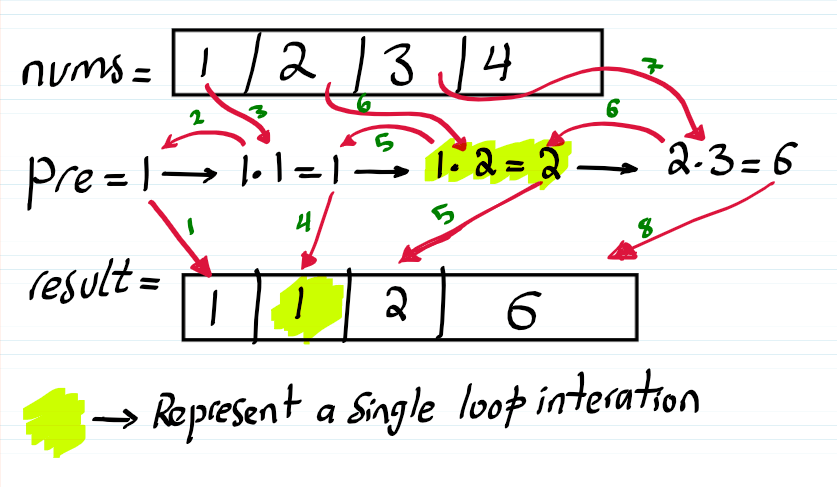 nums = 1 2 3 4
7
2 3 6 5 6
pre = 1 → 1·1=1 → 1·2=2 → 2·3=6
1 4 5 8
result = 1 1 2 6
→ Represent a single loop interation